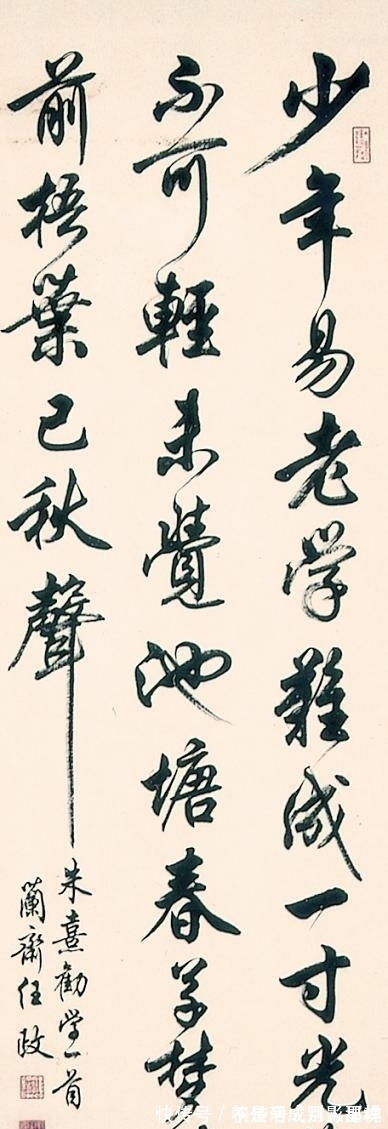 少年易老学難成一寸光
不可輕未覺池塘春草夢
前梧葉已秋聲
朱熹勸学一首
蘭齋任政
快传号 /